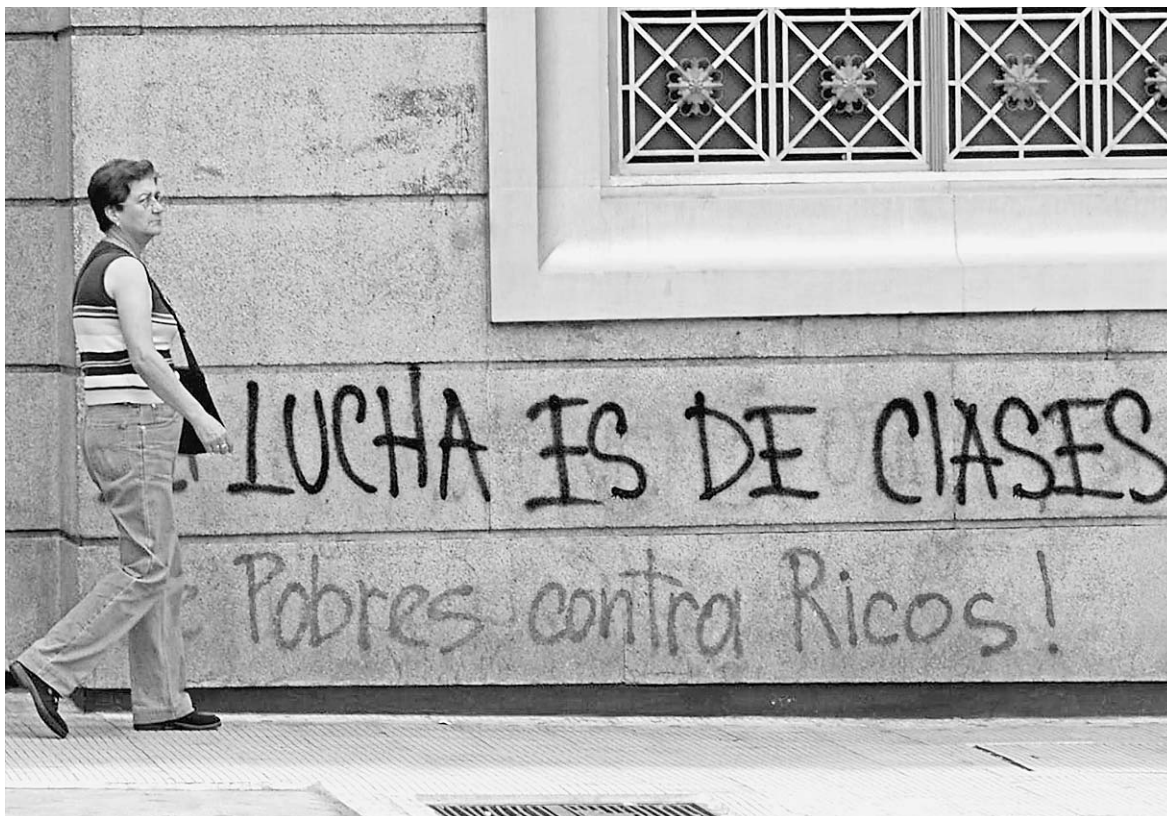 LUCHA ES DE CLASES
Pobres contra Ricos!